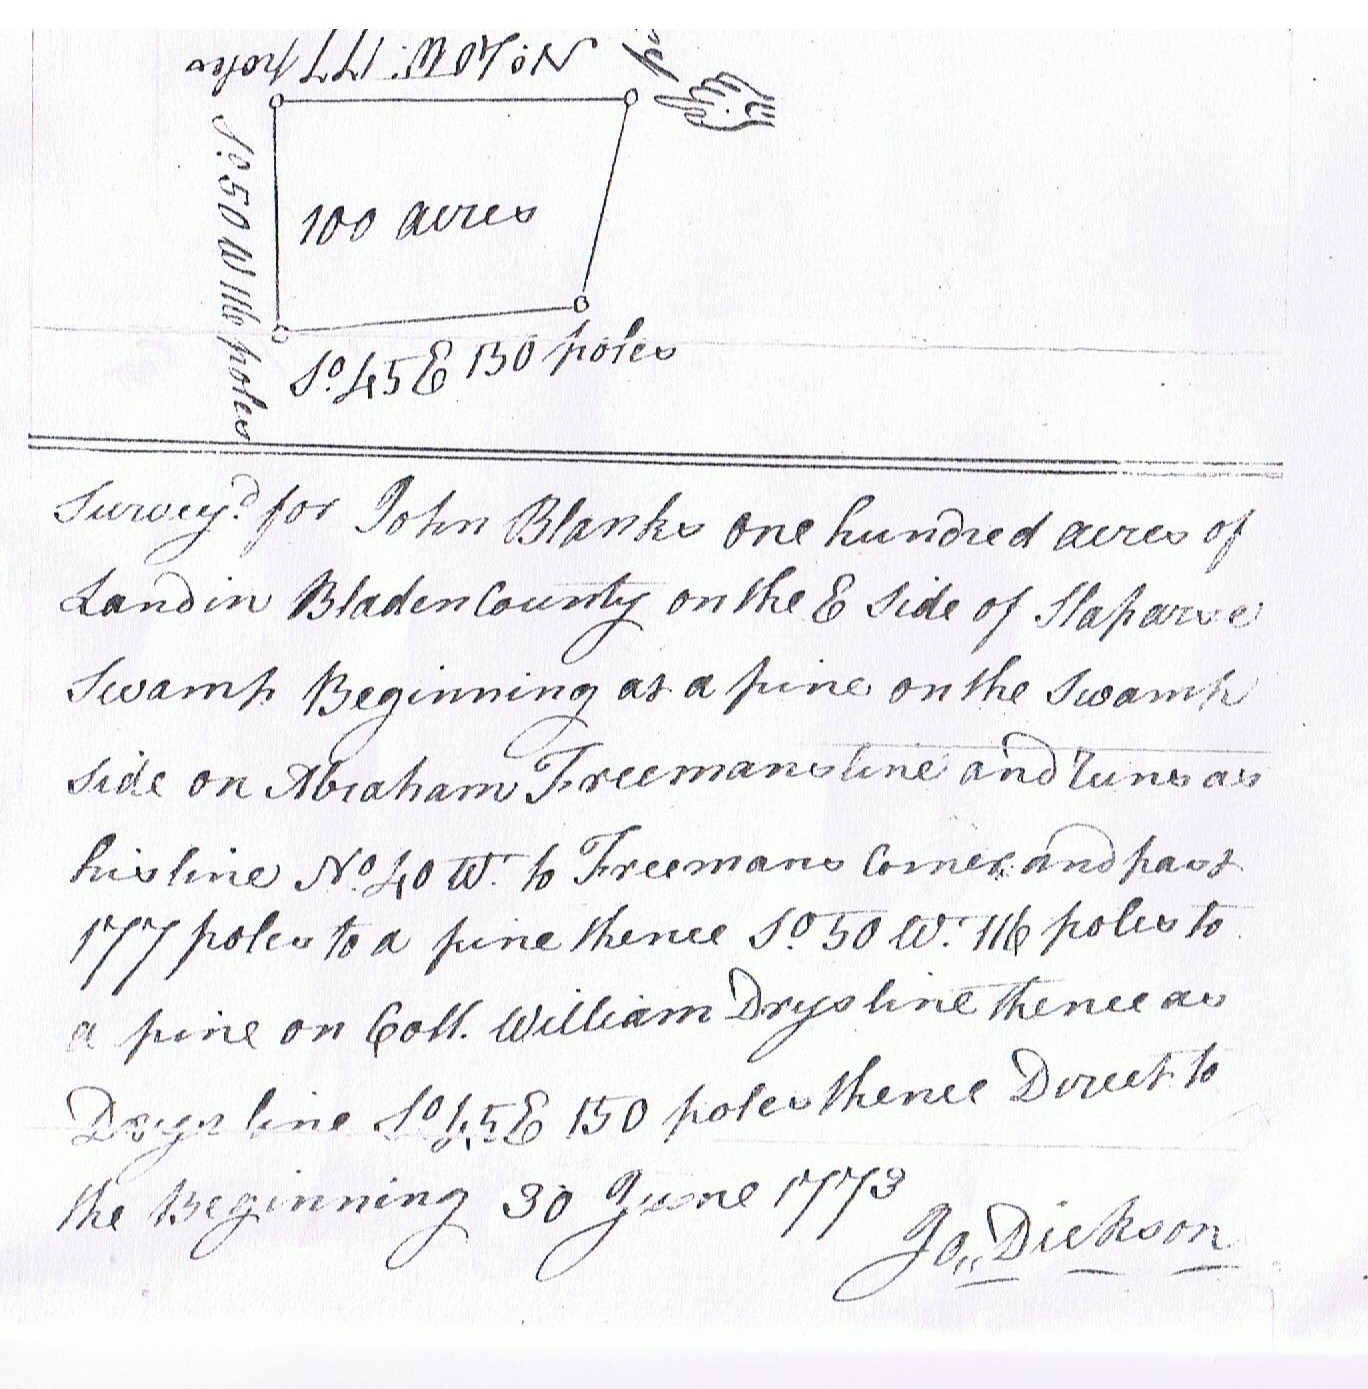 No. 40 W. 177 poles
So. 50 W 116 poles
100 acres
So 45 E 150 poles
Survey.d for John Blanks one hundred acres of
Land in Bladen County on the E Side of Slaparse
Swamp Beginning at a pine on the Swamp
Side on Abraham Freemans line and runs as
his line No. 40 W. to Freemans Corner and past
177 poles to a pine thence So 50 W. 116 poles to
a pine on Coll. William Drys line thence as
Drys line So 45 E 150 poles thence Direct to
the Beginning 30 June 1773
Jo,, Dickson